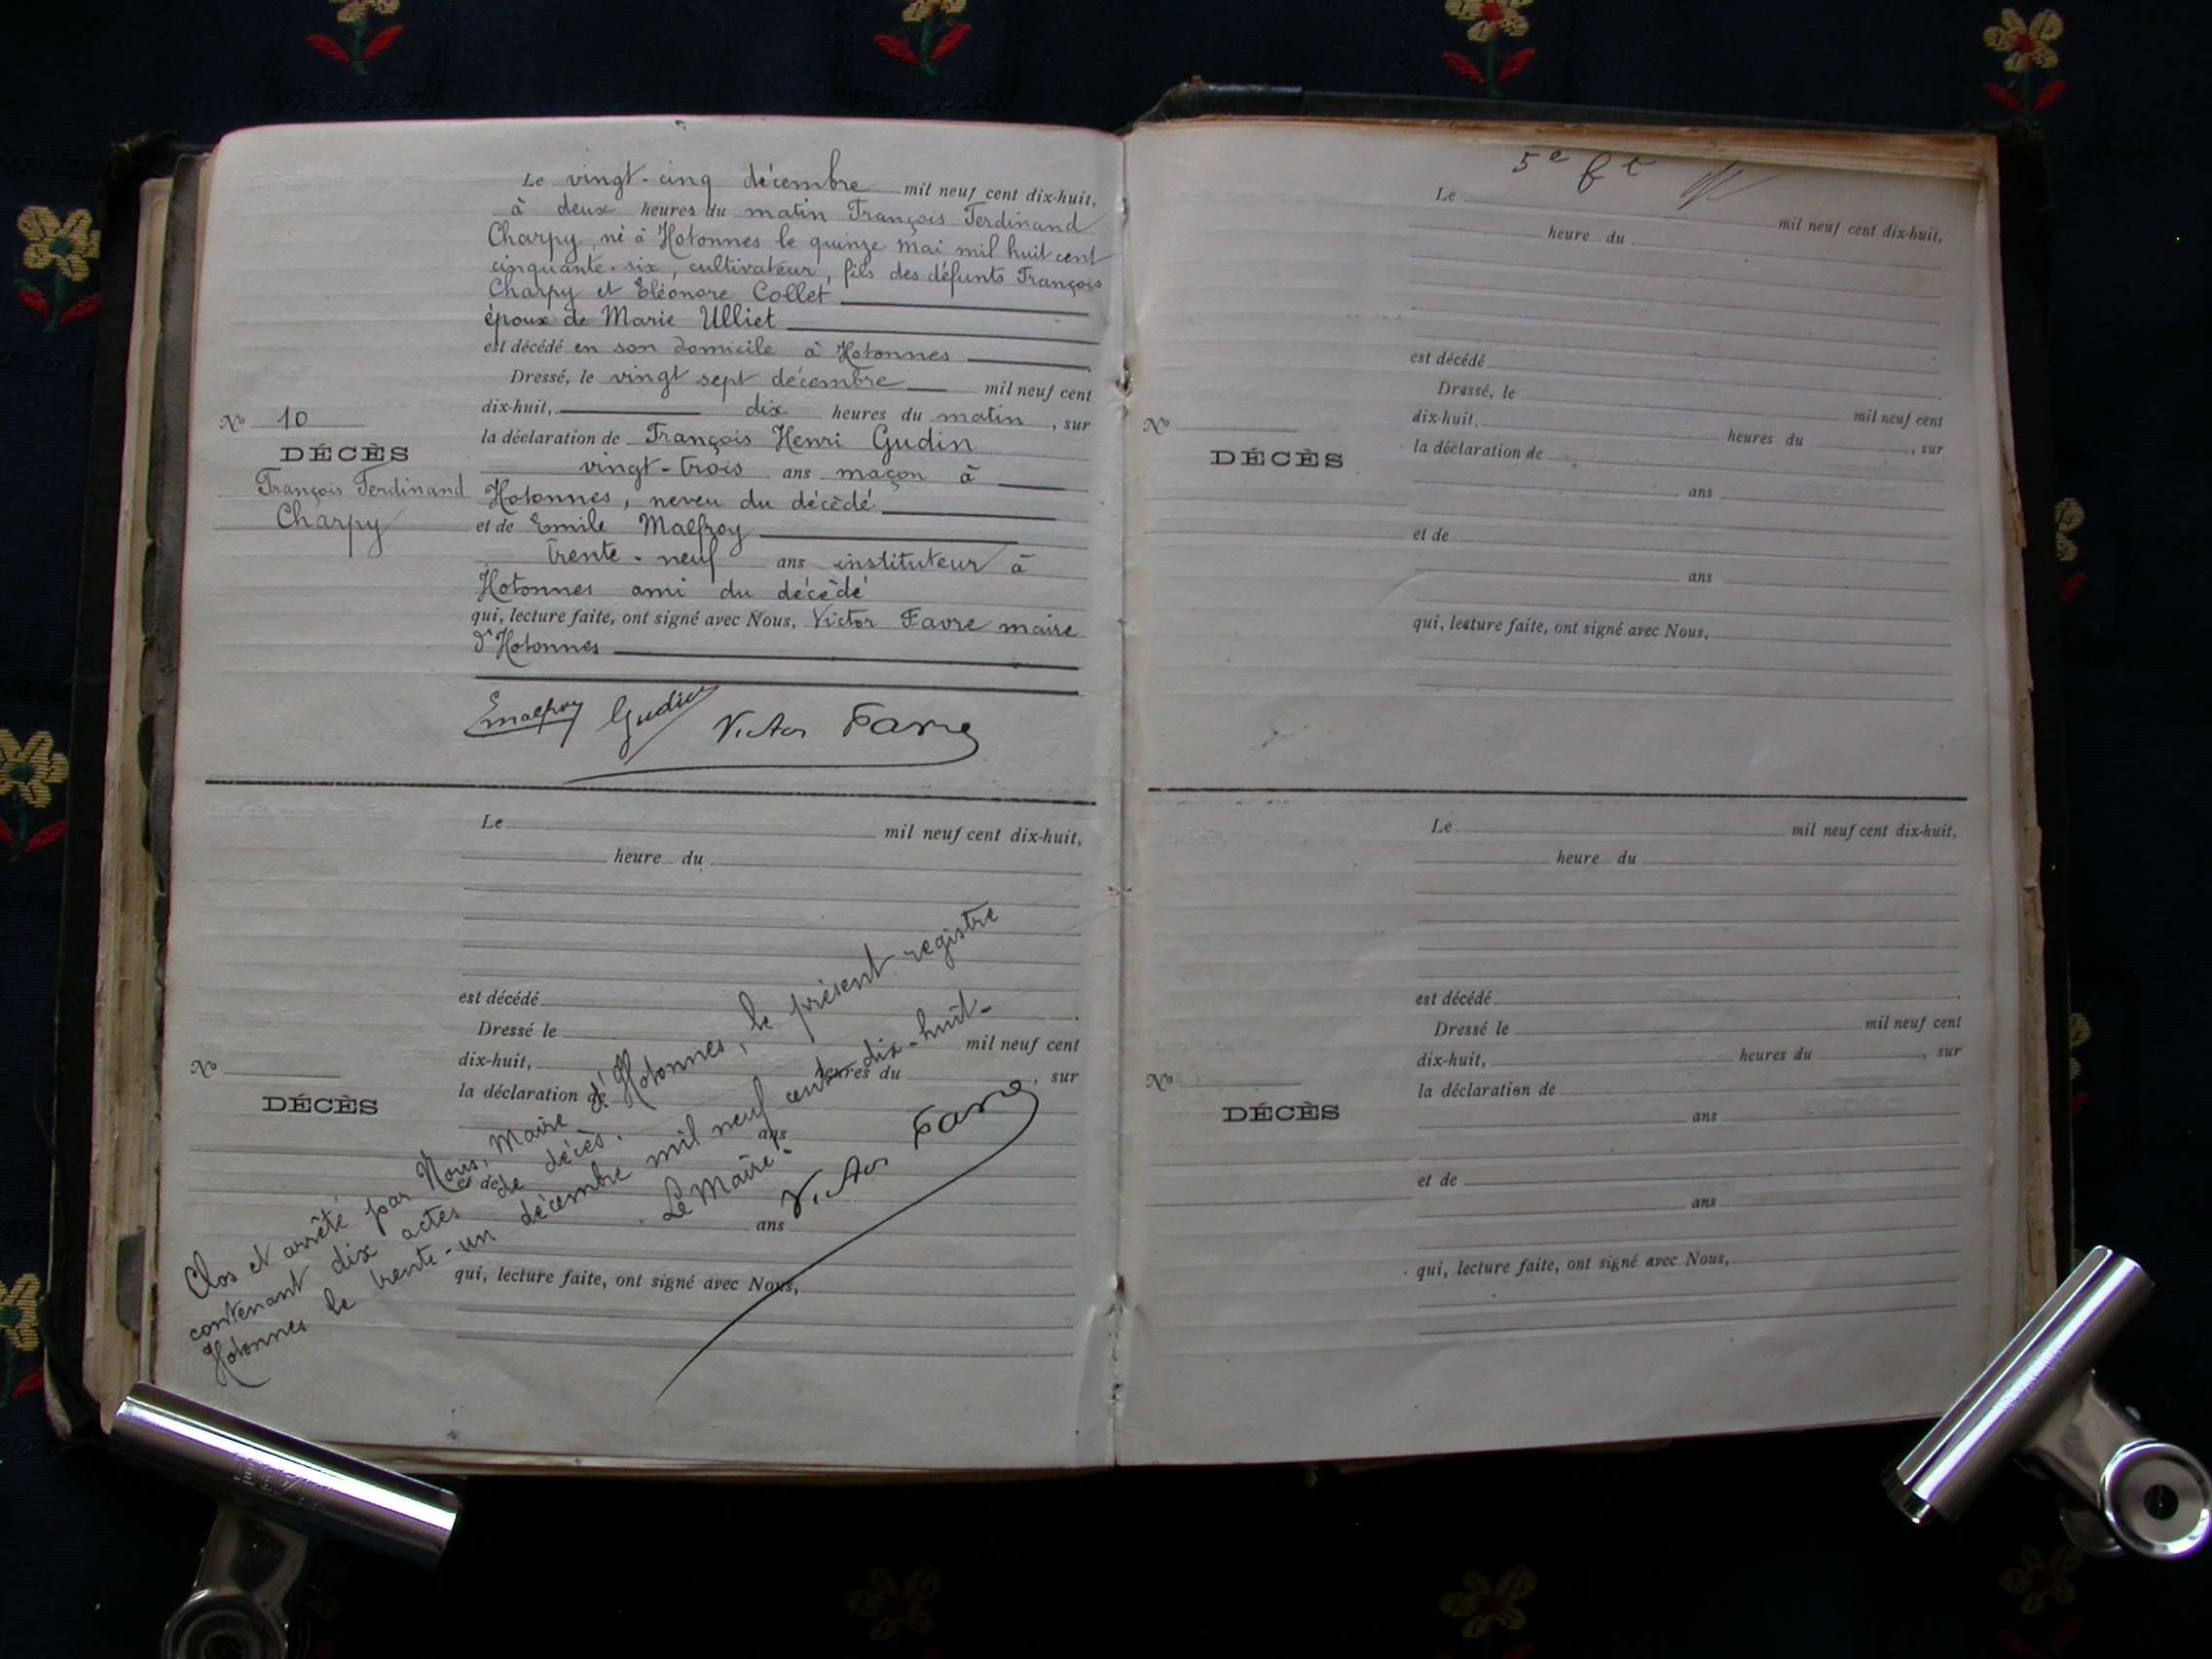 Le vingt-cinq décembre mil neuf cent dix-huit,
à deux heures du matin François Ferdinand
Charpy, né à Hotonnes le quinze mai mil huit cent
cinquante-six, cultivateur, fils des défunts François
Charpy et Eléonore Collet
époux de Marie Ulliet
est décédé en son domicile à Hotonnes
Dressé, le vingt sept décembre mil neuf cent
dix-huit, dix heures du matin, sur
la déclaration de François Henri Gudin
vingt-trois ans maçon à
Hotonnes, neveu du décédé
et de Emile Malfroy
trente-neuf ans instituteur à
Hotonnes ami du décédé
qui, lecture faite, ont signé avec Nous, Victor Favre maire
d'Hotonnes
N° 10
DÉCÈS
François Ferdinand
Charpy
Emalfroy Gudin Victor Favre
Le mil neuf cent dix-huit,
heure du
est décédé
Dressé le mil neuf cent
dix-huit, heures du , sur
la déclaration de
ans
et de
ans
qui, lecture faite, ont signé avec Nous,
N°
DÉCÈS
Clos et arrêté par Nous, Maire d'Hotonnes, le présent registre
contenant dix actes de décès.
Hotonnes le trente-un décembre mil neuf cent dix-huit-
Le Maire.
Victor Favre
5e
Le mil neuf cent dix-huit,
heure du
est décédé
Dressé, le mil neuf cent
dix-huit, heures du , sur
la déclaration de
ans
et de
ans
qui, lecture faite, ont signé avec Nous,
N°
DÉCÈS
Le mil neuf cent dix-huit,
heure du
est décédé
Dressé le mil neuf cent
dix-huit, heures du , sur
la déclaration de
ans
et de
ans
qui, lecture faite, ont signé avec Nous,
N°
DÉCÈS